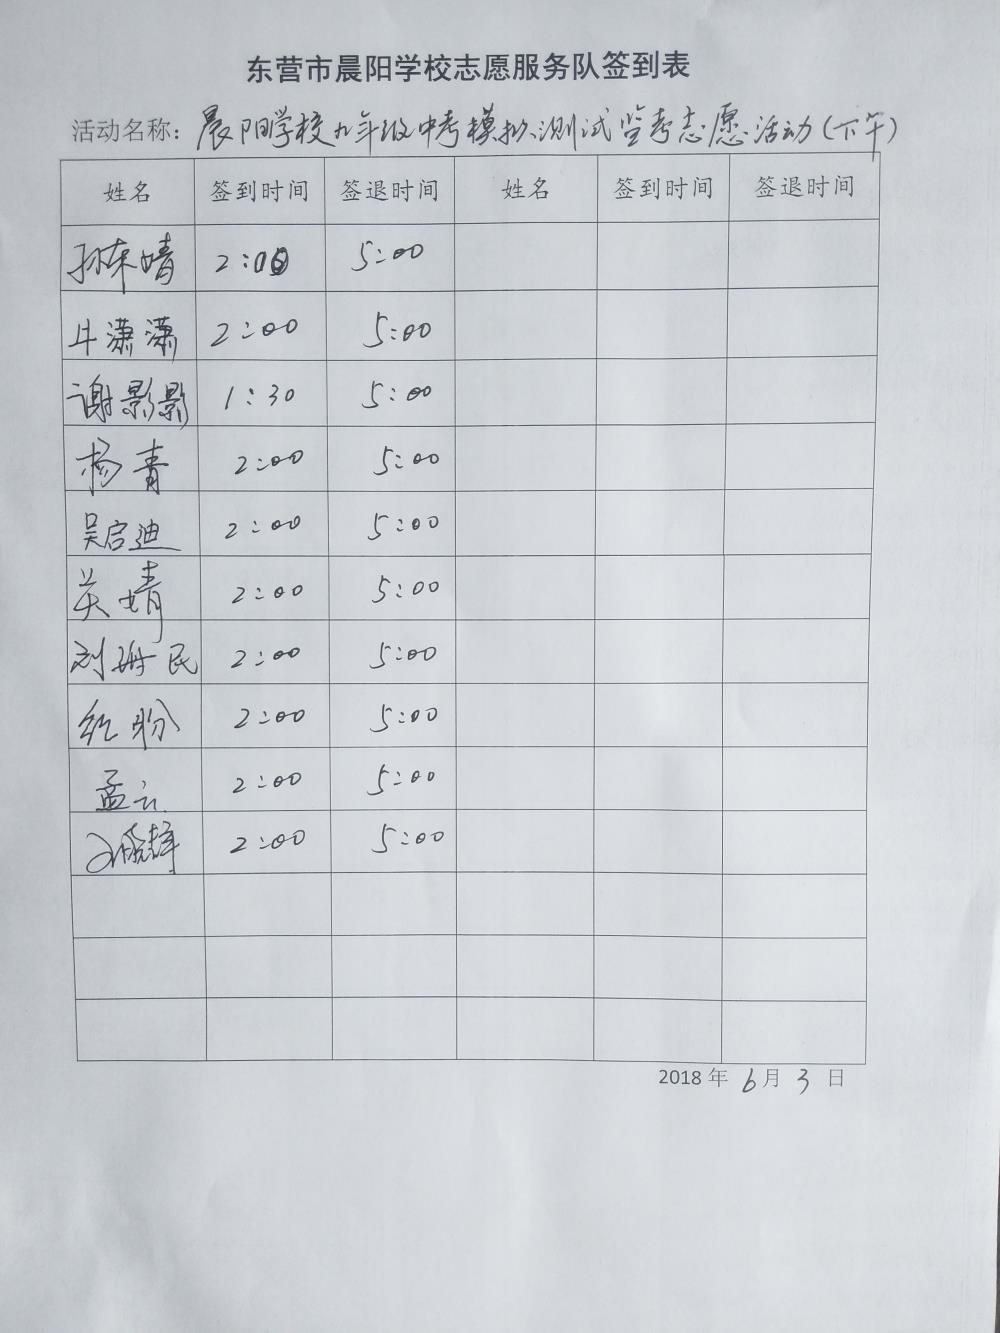 东营市晨阳学校志愿服务队签到表
活动名称：晨阳学校九年级中考模拟测试监考志愿活动(下午)
姓名 签到时间 签退时间 姓名 签到时间 签退时间
孙东婧 2:00 5:00
牛潇潇 2:00 5:00
谢影影 1:30 5:00
杨青 2:00 5:00
吴启迪 2:00 5:00
关婧 2:00 5:00
刘珊民 2:00 5:00
2:00 5:00
孟云 2:00 5:00
2:00 5:00
2018年6月3日